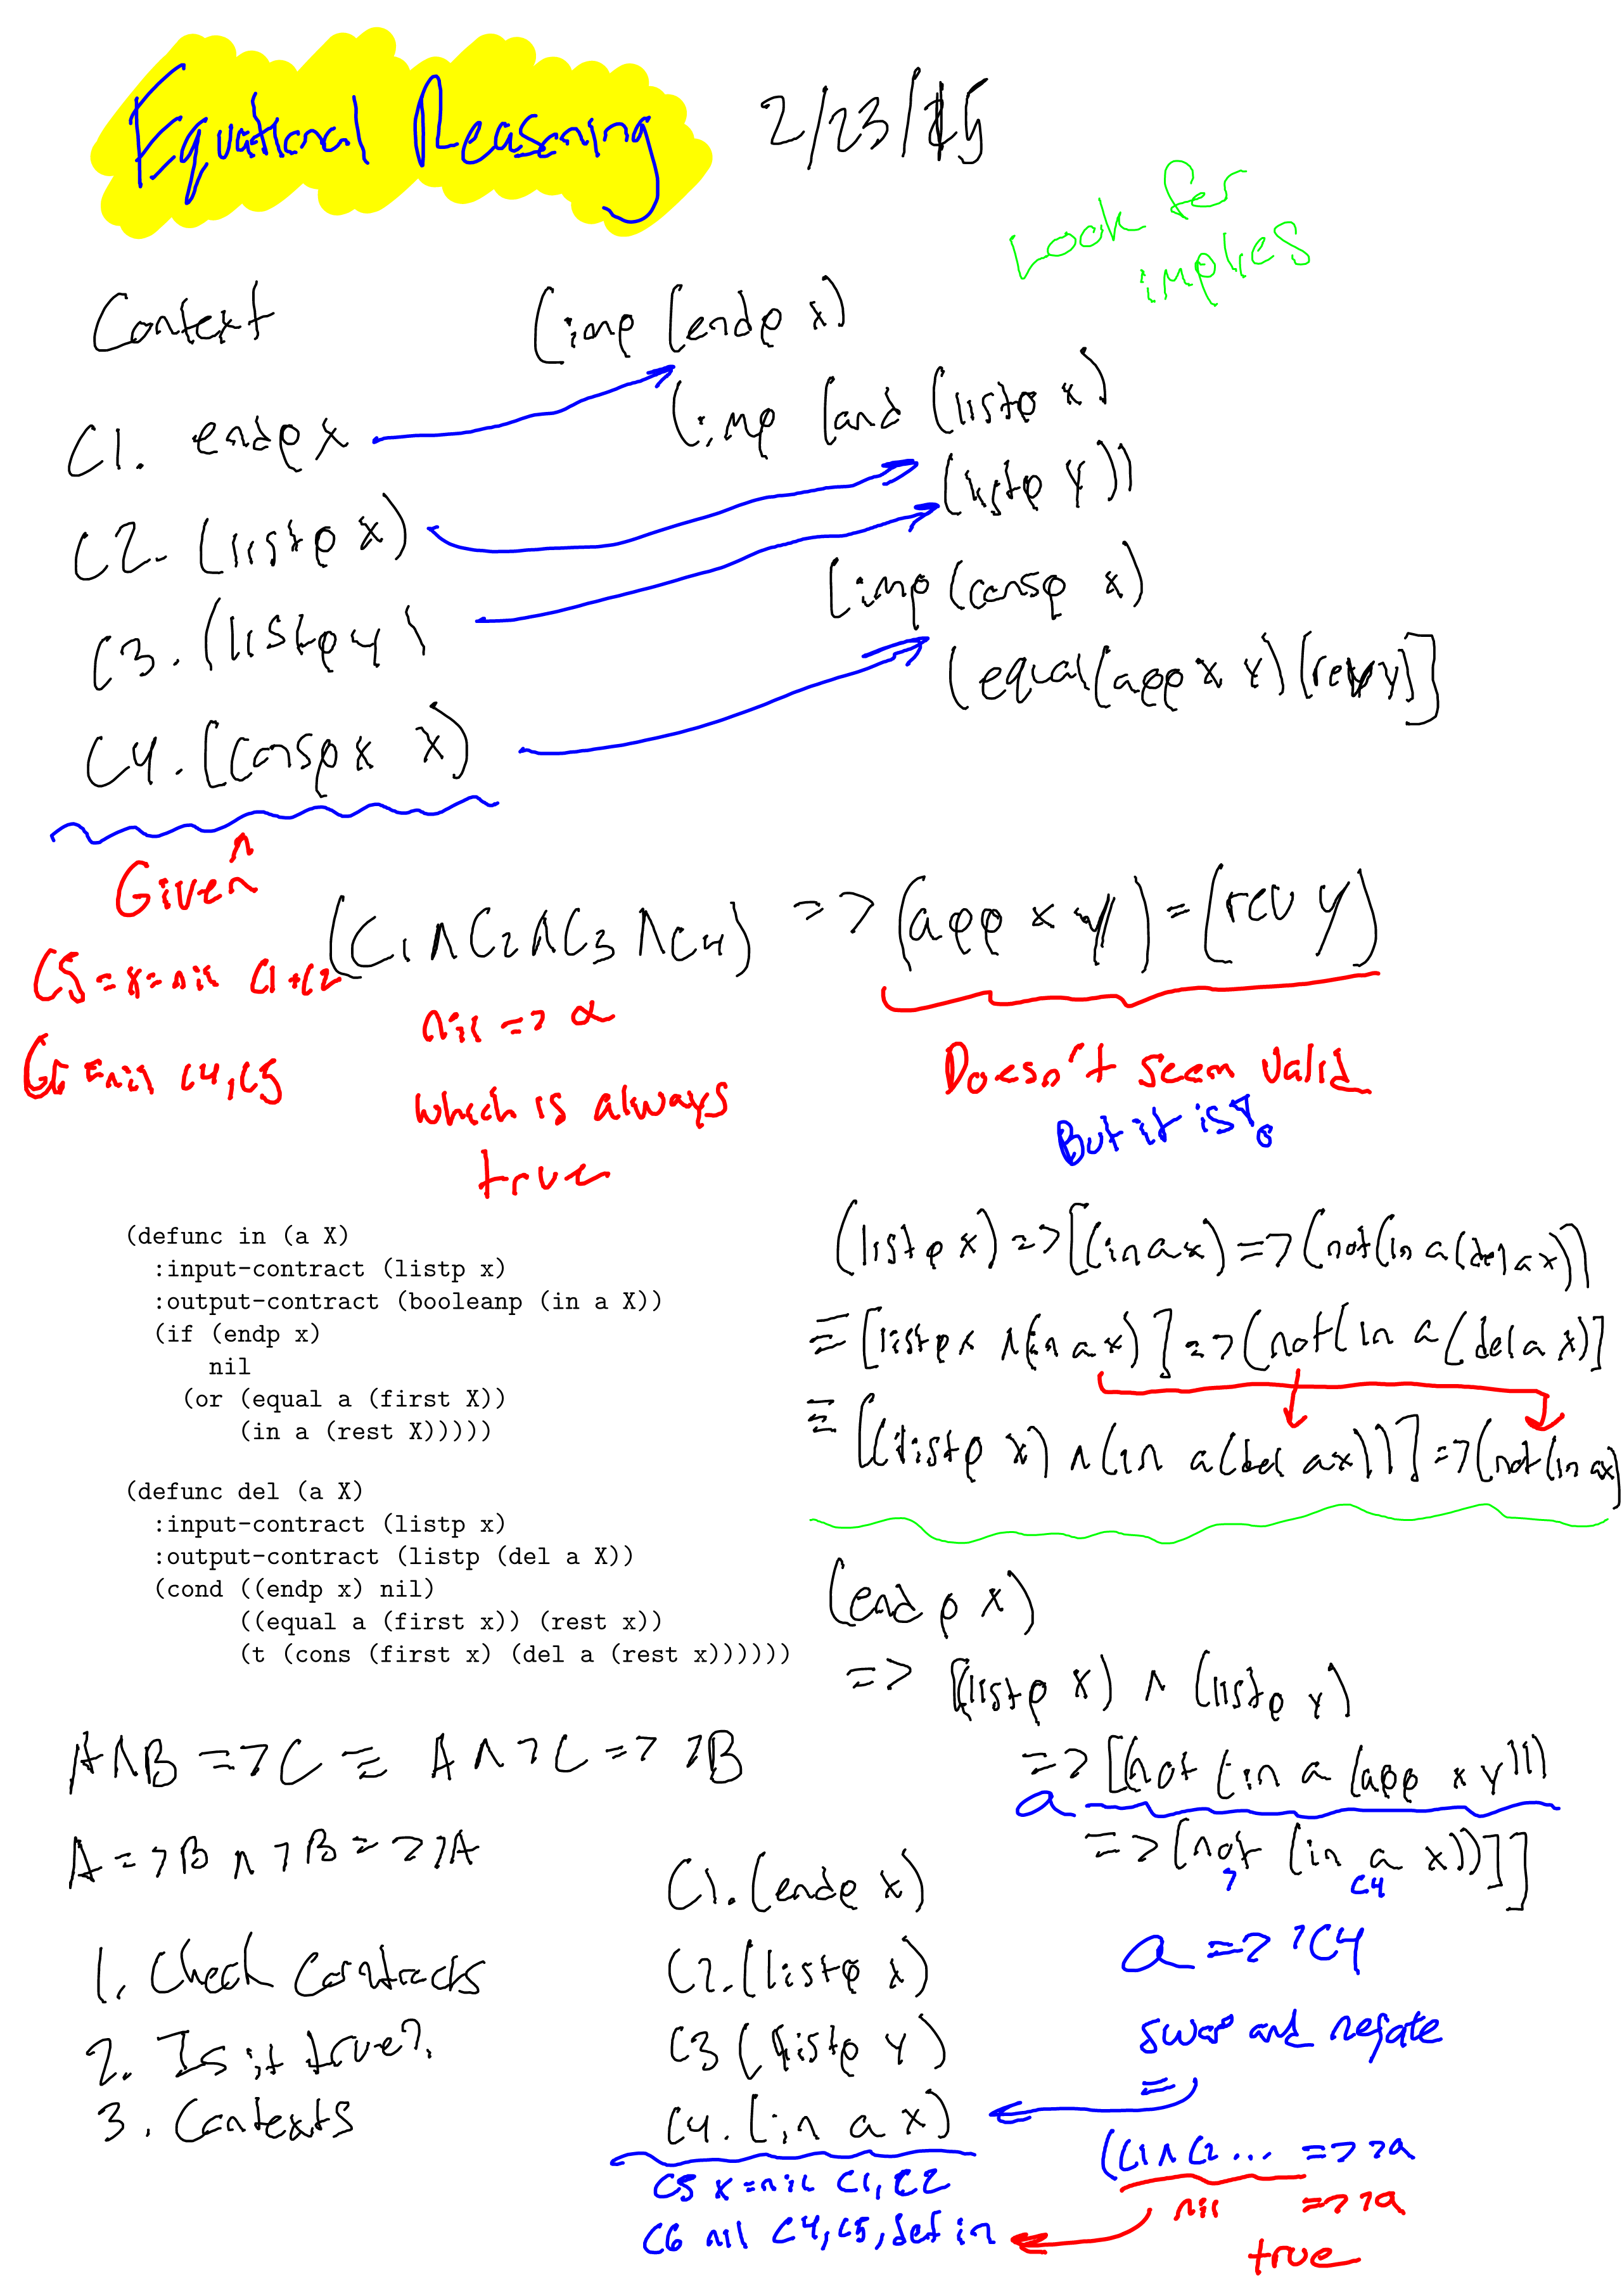 Equational Reasoning 2/23/15
Look for
implies
Context
(imp (endp x)
(imp (and (listp x)
(listp y))
(imp (consp x)
(equal (app x y) (rev y)]
C1. endp x
C2. (listp x)
C3. (listp y)
C4. (consp x x)
Given
(C1 ∧ C2 ∧ C3 ∧ C4) => (app x y) = (rev y)
C5 = x = nil C1+C2
C6 = nil C4, C5
nil => α
which is always
true
Doesn't seem valid
But it is!
(defunc in (a X)
:input-contract (listp x)
:output-contract (booleanp (in a X))
(if (endp x)
nil
(or (equal a (first X))
(in a (rest X)))))
(defunc del (a X)
:input-contract (listp x)
:output-contract (listp (del a X))
(cond ((endp x) nil)
((equal a (first x)) (rest x))
(t (cons (first x) (del a (rest x))))))
(listp x) => [(in a x) => (not (in a (del a x))
≡ [listp x ∧ (in a x)] => (not (in a (del a x)]
≡ [(listp x) ∧ (in a (del a x))] => (not (in a x)
(endp x)
=> [(listp x) ∧ (listp y)
=> [(not (in a (app x y)))
a
=> (not (in a x))]]
¬ C4
A ∧ B => C ≡ A ∧ ¬C => ¬B
A => B ∧ ¬B => ¬A
1. Check Contracts
2. Is it true?
3. Contexts
C1. (endp x)
C2. (listp x)
C3 (listp y)
C4. (in a x)
C5 x = nil C1, C2
C6 nil C4, C5, def in
a => ¬C4
swap and negate
=
(C1 ∧ C2 ... => ¬a
nil => ¬a
true